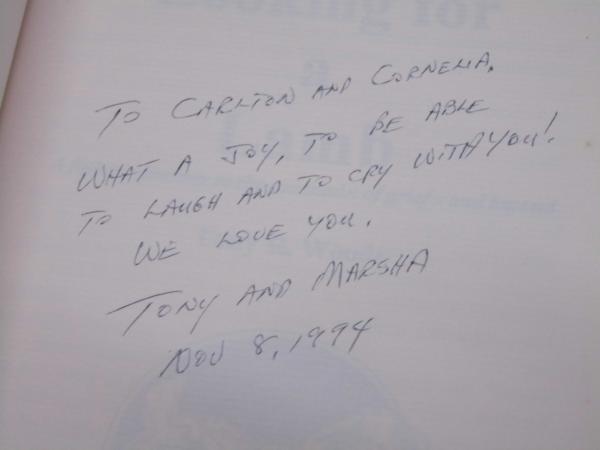 Looking for
a
Lamb
TO CARLTON AND CORNELIA,
WHAT A JOY, TO BE ABLE
TO LAUGH AND TO CRY WITH YOU!
WE LOVE YOU.
TONY AND MARSHA
NOV 8, 1994